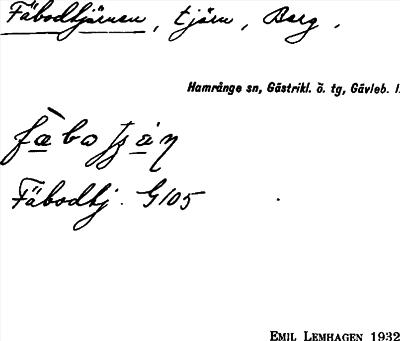 Fäbodtjärnen, tjärn, Berg.
Hamrånge sn, Gästrikl. ö. tg, Gävleb. l.
Fäbodtj. G105
EMIL LEMHAGEN 1932